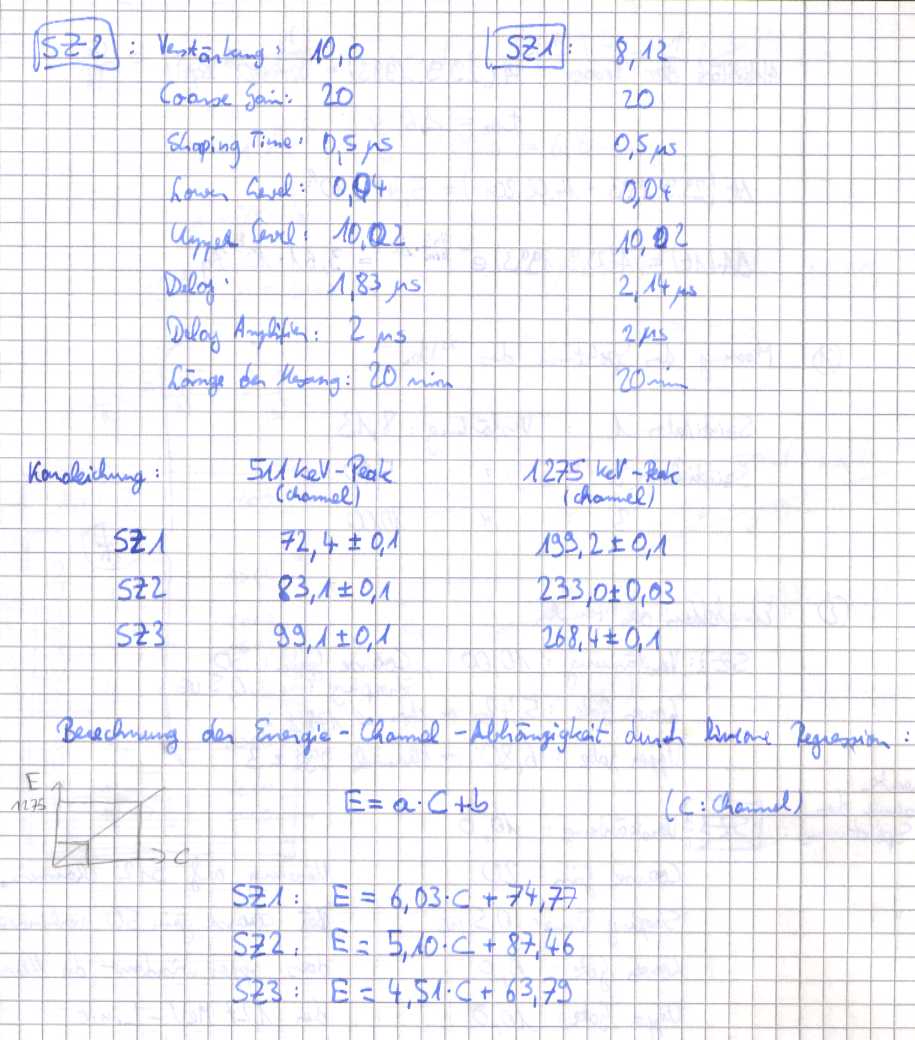 SZ-2 : Verstärkung: 10,0 SZ1: 8,12
Coarse Gain: 20 20
Shaping Time: 0,5 µs 0,5 µs
Lower Level: 0,04 0,04
Upper Level: 10,02 10,02
Delay: 1,83 µs 2,14 µs
Delay Amplifier: 2 µs 2 µs
Länge der Messung: 20 min 20 min
Kanaleichung: 511 keV-Peak 1275 keV-Peak
(channel) (channel)
SZ1 72,4 ± 0,1 199,2 ± 0,1
SZ2 83,1 ± 0,1 233,0 ± 0,03
SZ3 99,1 ± 0,1 268,4 ± 0,1
Berechnung der Energie-Channel-Abhängigkeit durch lineare Regression:
E
1275
E = a·C + b (C: Channel)
C
SZ1: E = 6,03·C + 74,77
SZ2: E = 5,10·C + 87,46
SZ3: E = 4,51·C + 63,79